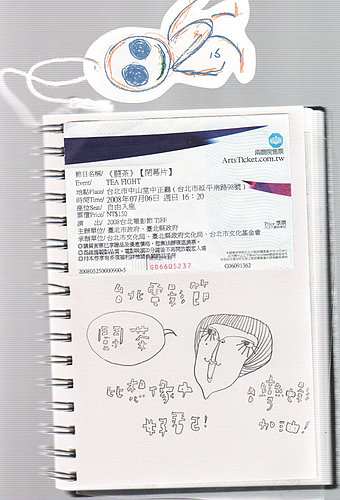 16
兩廳院售票
ArtsTicket.com.tw
節目名稱/ 《鬪茶》【閉幕片】
Event/ TEA FIGHT
地點Place/ 台北市中山堂中正廳(台北市延平南路98號)
時間Time/ 2008年07月06日 週日 16:20
座位Seat/ 自由入座
票價Price/ NT$150
Price 票價
演 出/ 2008台北電影節 TIFF
主辦單位/ 臺北市政府、臺北縣政府
承辦單位/ 台北市文化局、臺北縣政府文化局、台北市文化基金會
200805250000900-5
G06605237
G06091362
台北電影節
鬪茶
比想像中
好看!